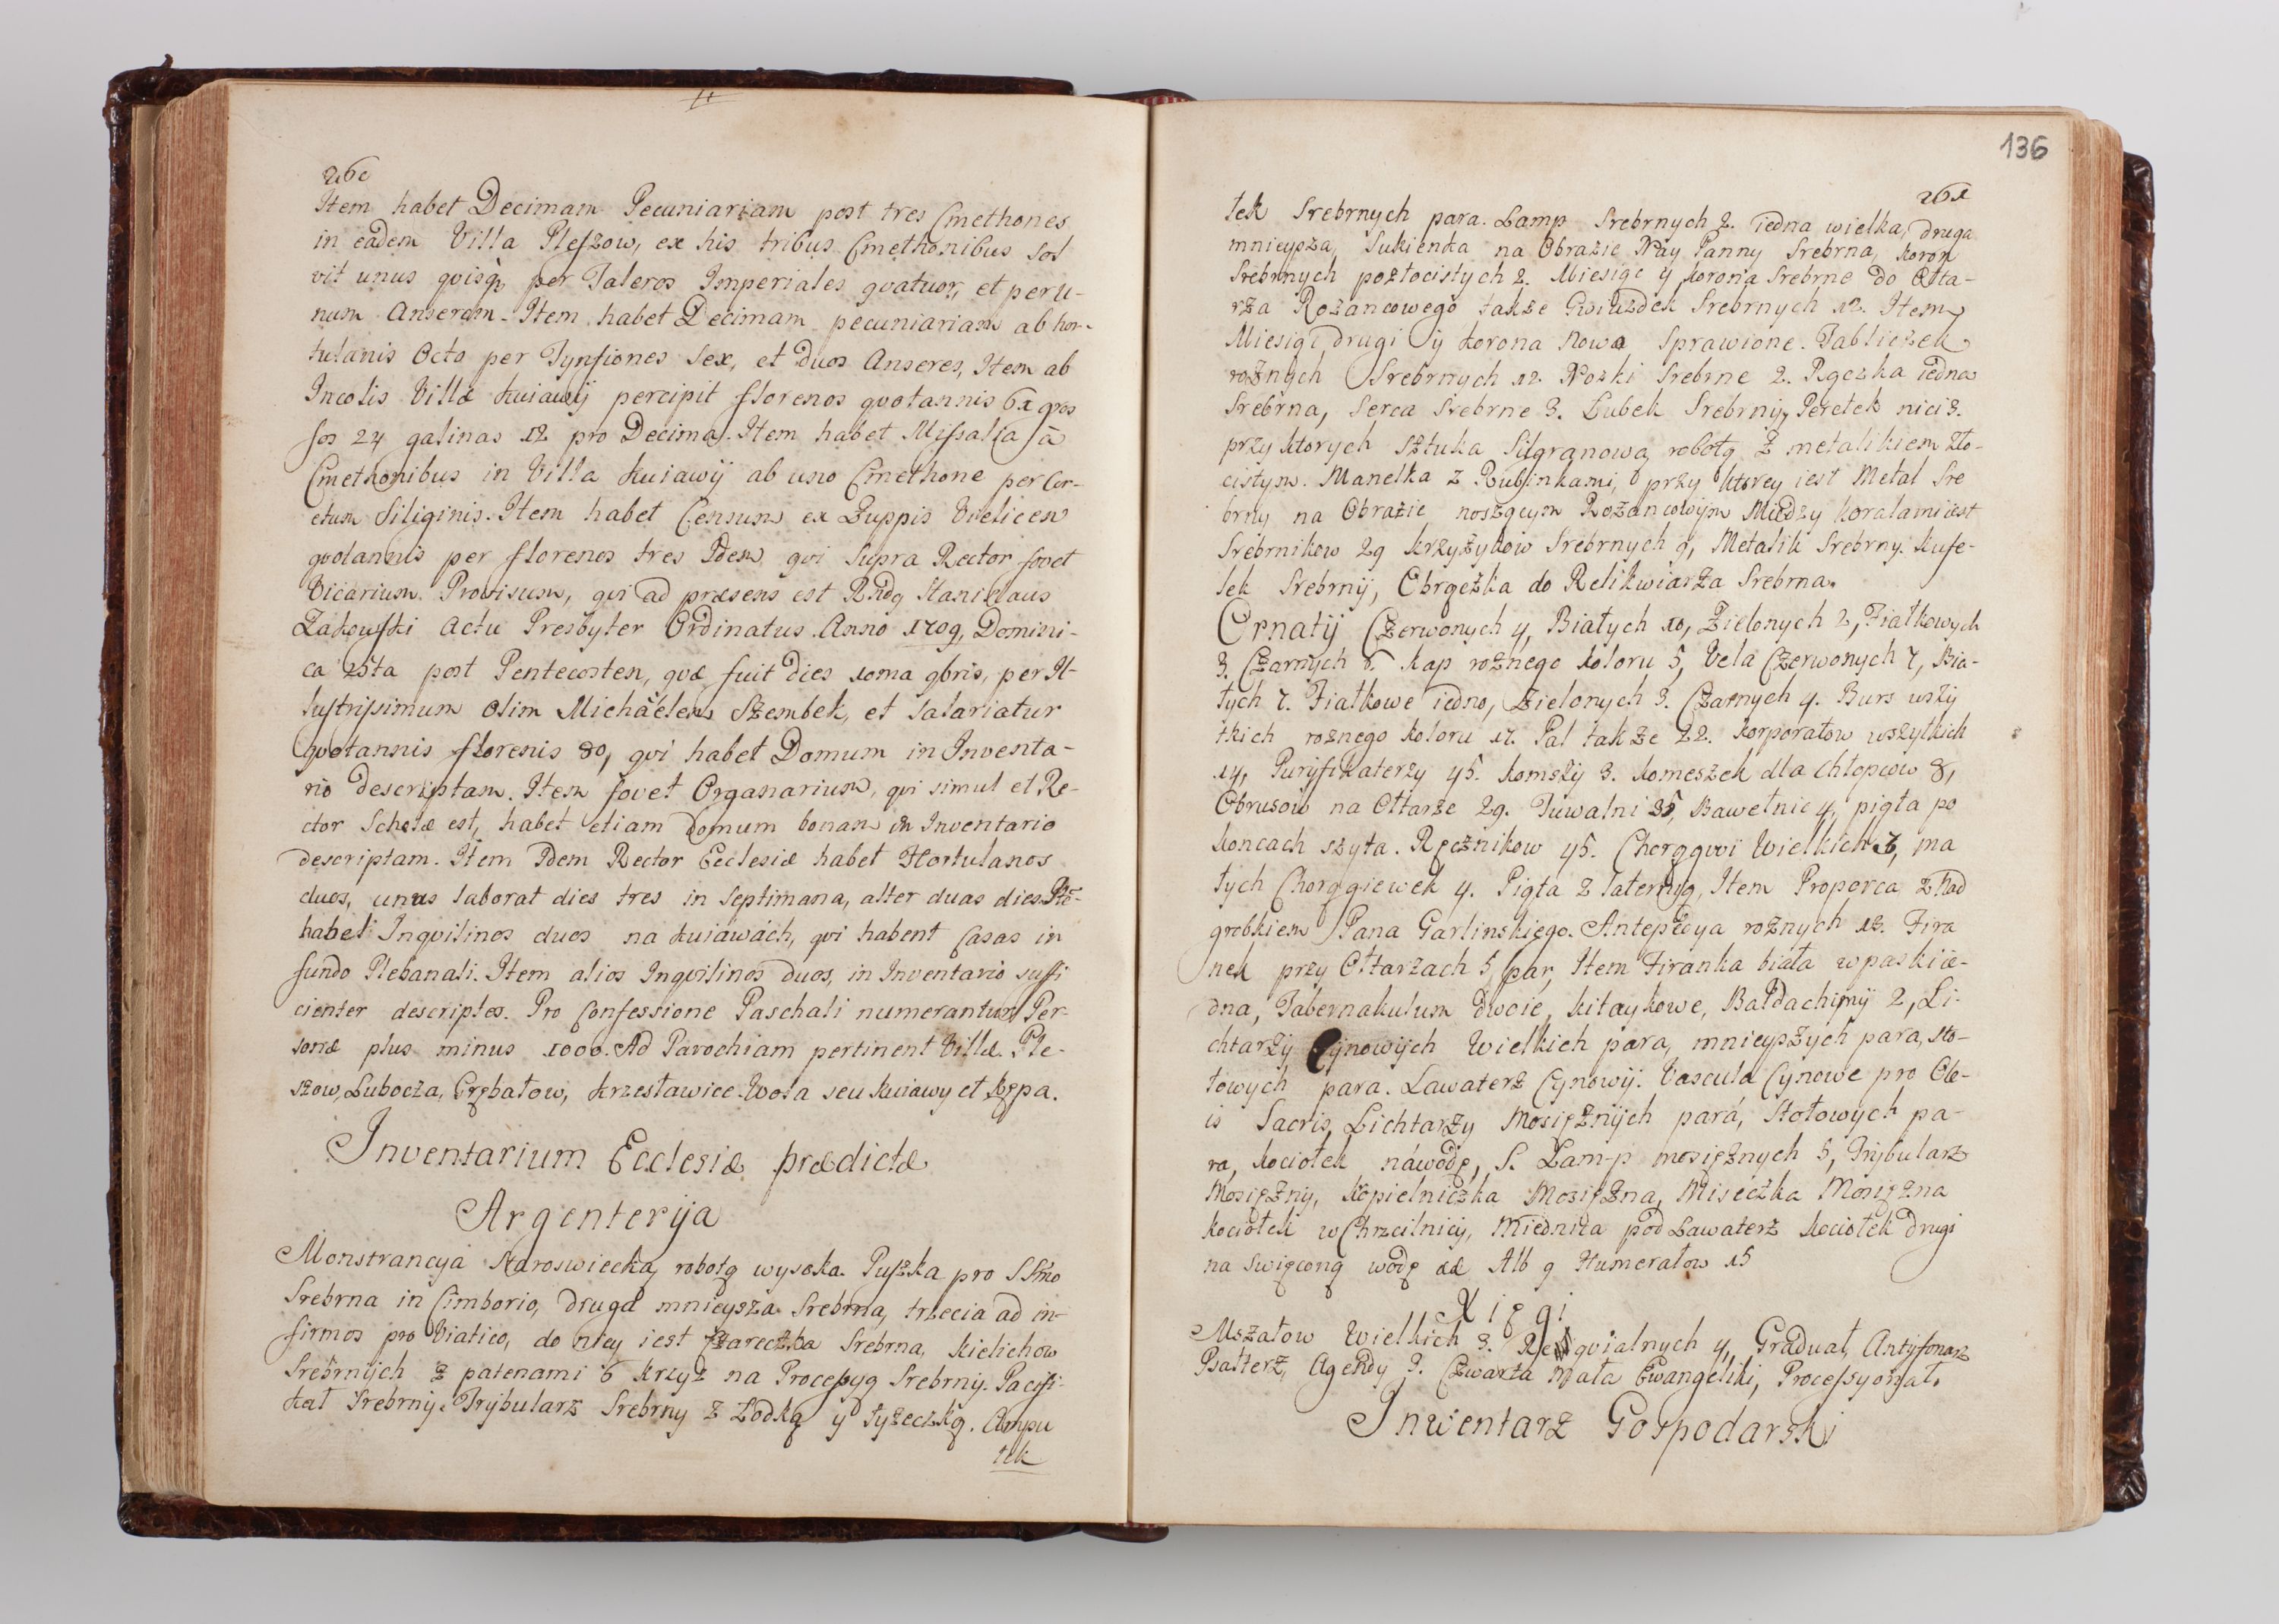 260
Item habet Decimam Pecuniariam post tres Cmethones
in eadem Villa Pleszow, ex his tribus Cmethonibus sol
vit unus qvisq, per Taleros Imperiales qvatuor, et per u-
num Anserem. Item habet Decimam pecuniariam ab hor-
tulanis Octo per Tynfiones Sex, et duos Anseres, Item ab
Incolis Villæ Kuiawÿ percipit florenos qvotannis 61 gros
sos 24 galinas 12 pro Decima. Item habet Missalia à
Cmethonibus in Villa Kuiawÿ ab uno Cmethone per Cor-
etum Siliginis. Item habet Censum ex Zuppis Vielicen
qvotannis per florenos tres Idem qvi Supra Rector fovet
Vicarium Provisum, qvi ad præsens est Rndq Stanislaus
Zakowski Actu Presbyter Ordinatus Anno 1709, Domini-
ca post Pentecosten, qvæ fuit dies 10ma 9bris, per Il-
lustrissimum Olim Michaëlem Szembek, et Salariatur
qvotannis florenis 80, qvi habet Domum in Inventa-
rio descriptam. Item fovet Organarium, qvi simul et Re-
ctor Scholæ est, habet etiam Domum bonam in Inventario
descriptam. Item Idem Rector Ecclesiæ habet Hortulanos
duos, unus laborat dies tres in Septimana, alter duas dies. Ite-
habet Inqvilinos duos na Kuiawách, qvi habent Casas in
fundo Plebanali. Item alios Inqvilinos duos, in Inventario suffi
cienter descriptos. Pro Confessione Paschali numerantur Per-
sonæ plus minus 1000. Ad Parochiam pertinent Villæ. Ple-
szow, Lubocza, Grębałow, Krzesławice. Wola seu Kuiawy et Kępa.
Inventarium Ecclesiæ prædictæ
Argenterija
Monstrancya Staroswiecką robotą wysoka. Puszka pro SSmo
Srebrna in Cimborio, druga mnieysza Srebrna, trzecia ad in-
firmos pro Viatico, do niey iest Czareczka Srebrna, Kielichow
Srebrnych z patenami 6 Krzyż na Processyą Srebrny. Pacifi-
kał Srebrny. Trybularz Srebrny z Łodką y łyżeczką. Ampu
łek
136
261
łek Srebrnych para. Lamp Srebrnych 2. iedna wielka, druga
mnieysza, Sukienka na Obrazie Nay Panny Srebrna, Koron
Srebrnych pozłocistych 2. Miesiąc y Korona Srebrne do Ołta-
rza Rożancowego także Gwiazdek Srebrnych 12. Item
Miesiąc drugi ÿ Korona Nowa Sprawione. Tabliczek
rożnych Srebrnych 12. Nożki Srebrne 2. Rączka iedna
Srebrna, Serca Srebrne 3. Łubek Srebrny, Perełek nici 3.
przy Ktorych Sztuka Filgranową robotą z metalikiem Zło-
cistym. Manelka z Rubinkami, przy Ktorey iest Metal Sre
brny na Obrazie noszącym Rożancowym Między Koralami iest
Srebrnikow 29 Krzyżykow Srebrnych 9, Metalik Srebrny. Kufe-
lek Srebrnÿ, Obrączka do Relikwiarza Srebrna.
Ornatÿ Czerwonych 4, Białych 10, Zielonych 2, Fiałkowych
3. Czarnych 6. Kap rożnego Koloru 5, Vela Czerwonych 7, Bia-
łych 7. Fiałkowe iedno, Zielonych 3. Czarnych 4. Burs wszy
tkich rożnego Koloru 17. Pal także 22. Korporałow wszytkich
14, Puryfikaterzy 45. Komży 3. Komeszek dla Chłopcow 8,
Obrusow na Ołtarze 29. Tuwalni 35, Bawełnic 4, piąta po
Koncach szyta. Ręcznikow 45. Chorągwi Wielkich 7, ma
łych Chorągiewek 4. Piąta z Laternią, Item Proporca z Nad
grobkiem Pana Garlinskiego. Antepedya rożnych 12. Fira
nek przy Ołtarzach 5, par, Item Firanka biała w paski ie-
dna, Tabernakulum dwoie, Kitaykowe, Bałdachimÿ 2, Li-
chtarzÿ Cynowÿch Wielkich para, mnieyszych para, Sto-
łowych para. Lawaterz Cynowÿ. Vascula Cynowe pro Ole-
is Sacris, Lichtarzy Mosiężnÿch pará, Stołowych pa-
ra, Kociołek ná wodę, S. Lamp mosiężnych 5, Trybularz
Mosiężnÿ, Kropielniczka Mosiężna, Miseczka Mosiężna
Kociołek w Chrzcilnicy, Miednica pod Lawaterz Kociołek drugi
na Swięconą wodę Alb 9 Humerałow 15
Xięgi
Mszałow Wielkich 3. Reqvialnych 4, Graduał, Antyfonarz
Psałterz, Agendy 3. Czwarta Mała Ewangeliki, Processyonał.
Inwentarz Gospodarski